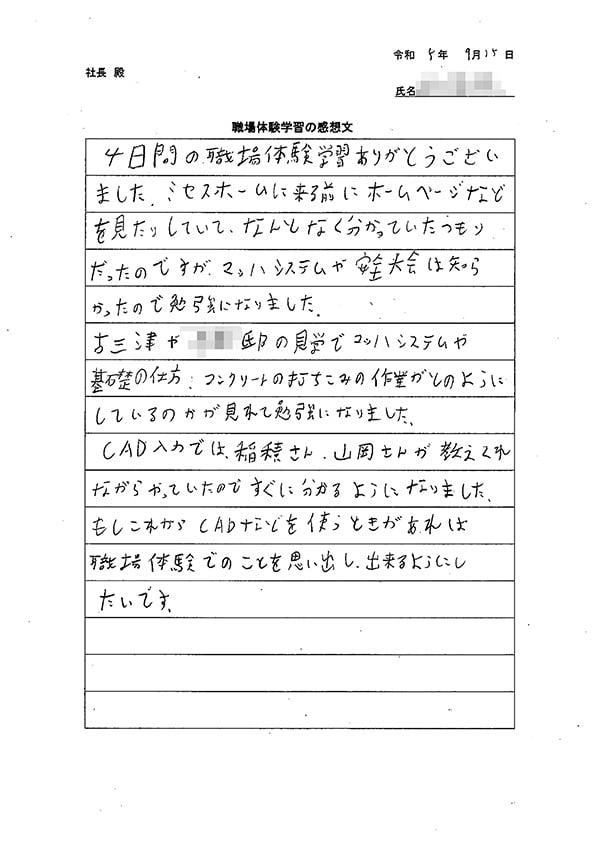 令和 5年 9月15日
社長 殿
氏名
職場体験学習の感想文
4日間の職場体験学習ありがとうござい
ました。ミセスホームに来る前にホームページなど
を見たりしていて、なんとなく分かっていたつもり
だったのですが、マッハシステムや安全大会は知ら
かったので勉強になりました。
古三津や 邸の見学でマッハシステムや
基礎の仕方、コンクリートの打ちこみの作業がどのように
しているのかが見れて勉強になりました。
CAD入力では、稲積さん、山岡さんが教えてくれ
ながらやっていたのですぐに分かるようになりました。
もしこれからCADなどを使うときがあれば
職場体験でのことを思い出し、出来るようにし
たいです。